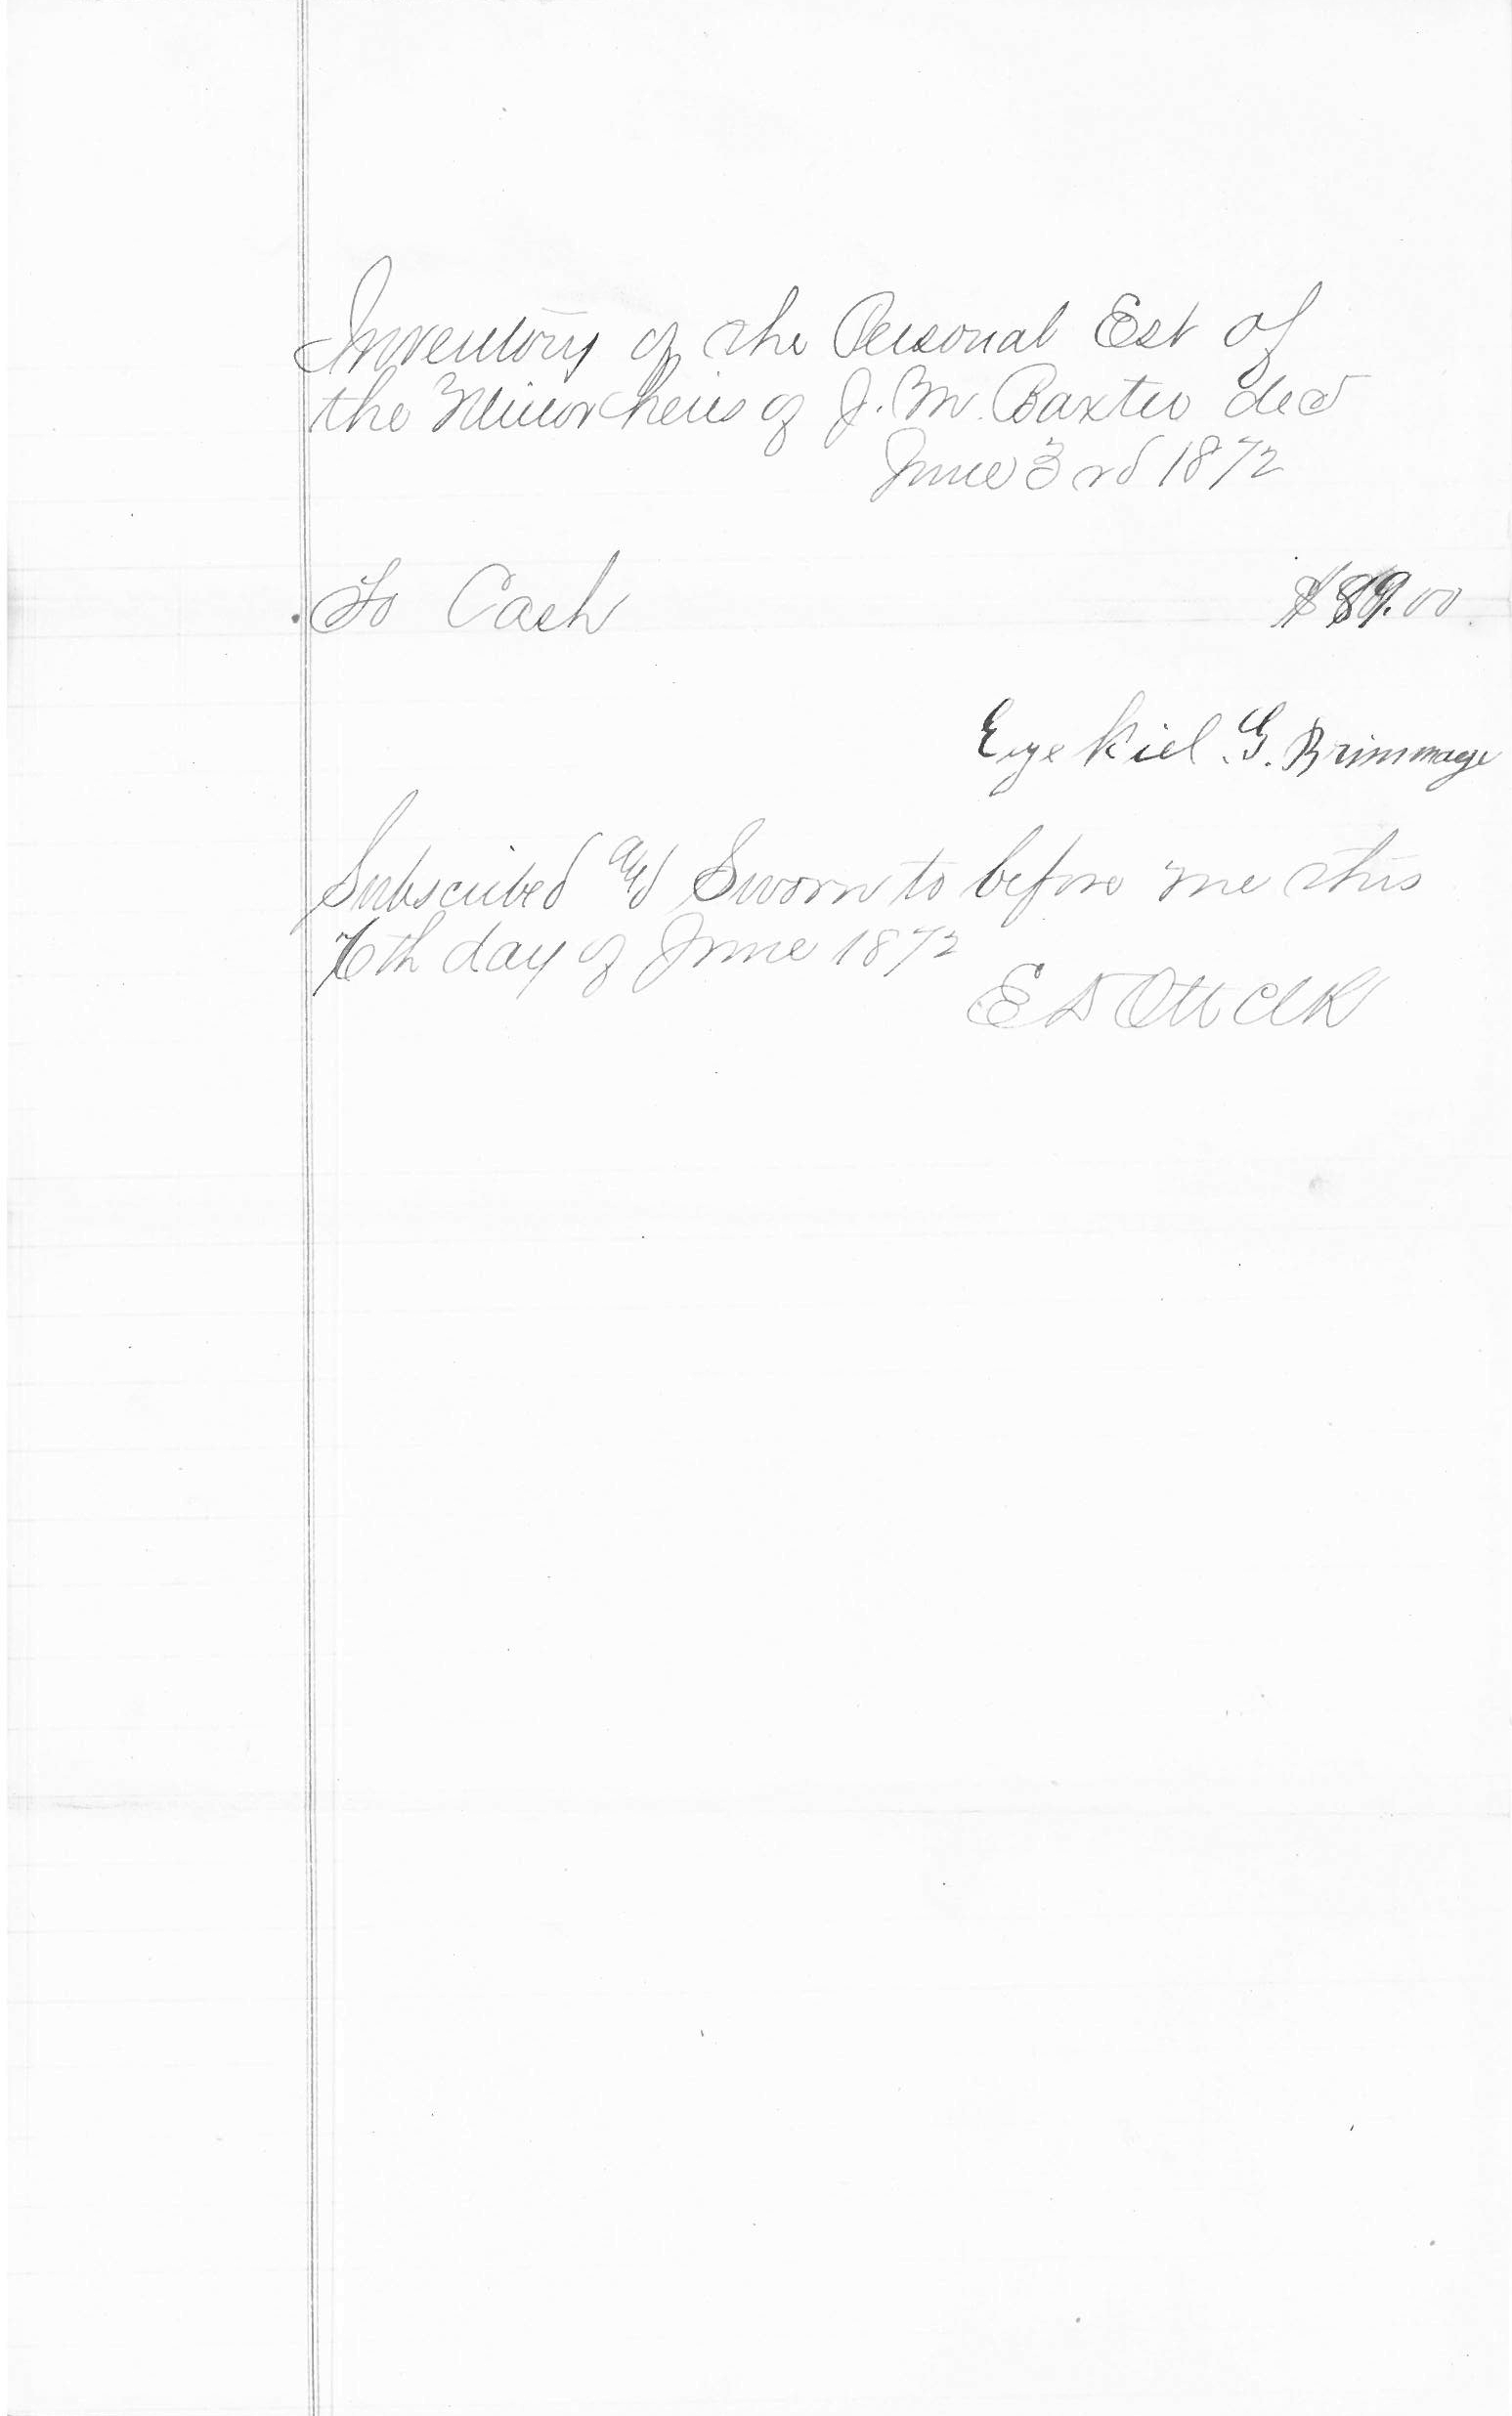 Inventory of the Personal Est of
the Minor heirs of J. M. Baxter decd
June 3rd 1872
To Cash $89.00
Ezekiel. G. Brimmage
Subscribed and Sworn to before me this
6th day of June 1872
E D Ott Clk